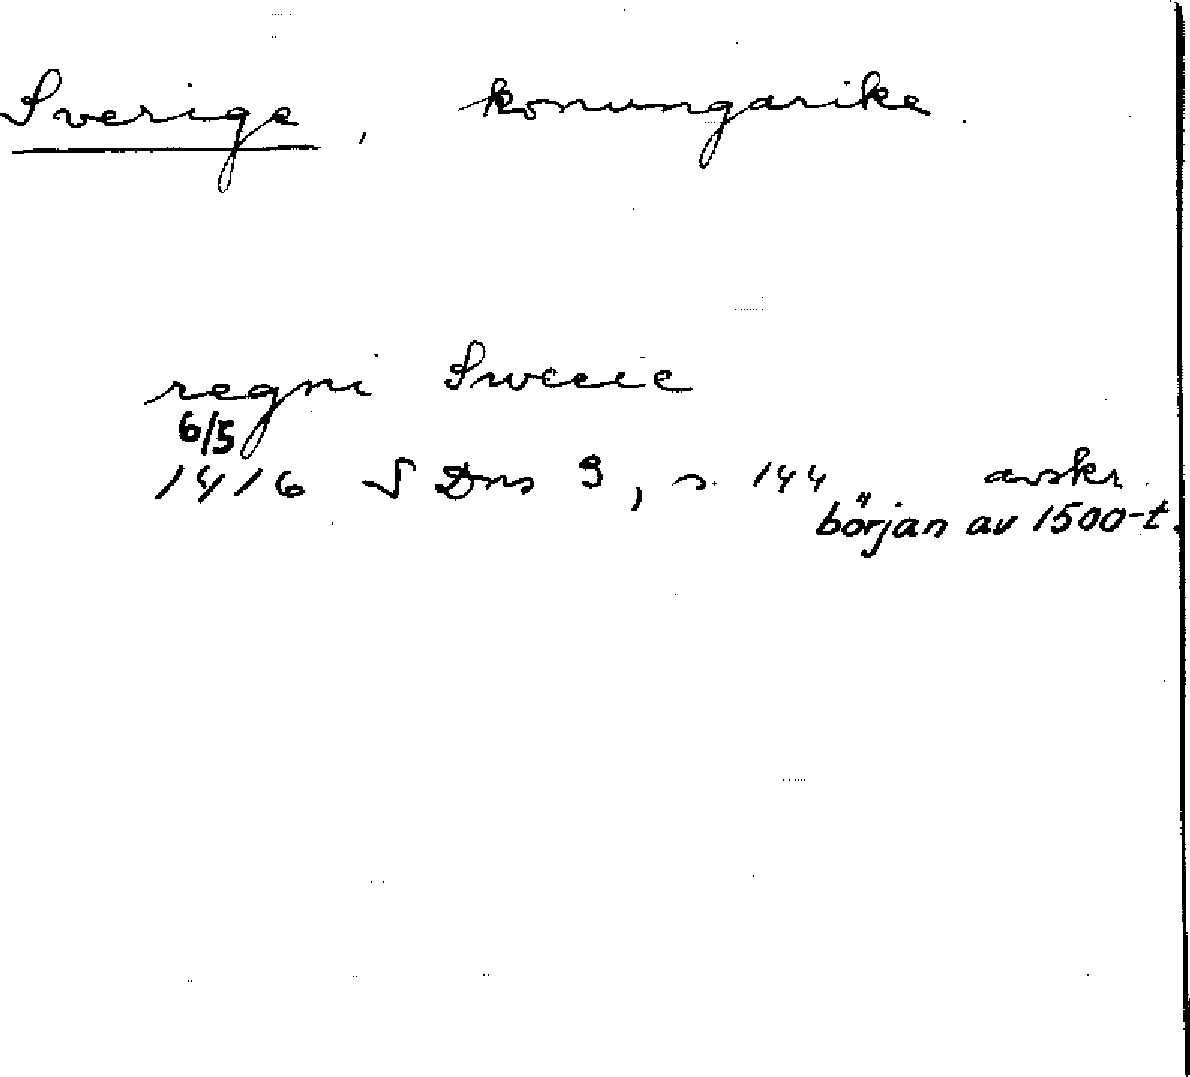 Sverige, konungarike
regni Sweeie
6/5
1416 SDns 3, s. 144 avskr.
början av 1500-t.